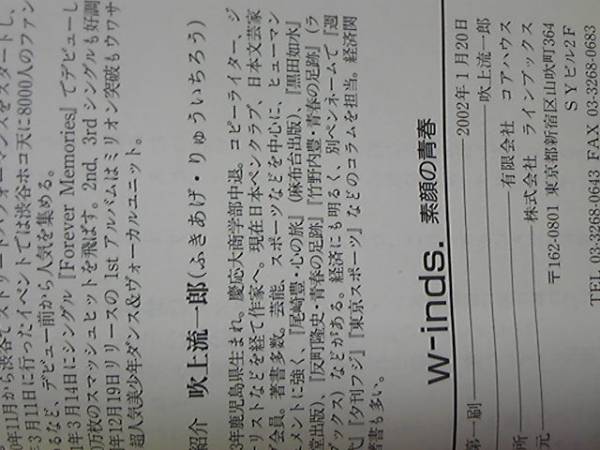 0年11月から渋谷でストリートパフォーマンスをスタートし、
年3月11日に行ったイベントでは渋谷ホコ天に8000人のファン
るなど、デビュー前から人気を集める。
1年3月14日にシングル『Forever Memories』でデビューし
0万枚のスマッシュヒットを飛ばす。2nd、3rdシングルも好調
年12月19日リリースの1stアルバムはミリオン突破もウワサ
超人気美少年ダンス&ヴォーカルユニット。
紹介 吹上流一郎(ふきあげ・りゅういちろう)
3年鹿児島県生まれ。慶応大商学部中退。コピーライター、ジ
リストなどを経て作家へ。現在日本ペンクラブ、日本文芸家
会員。著書多数。芸能、スポーツなどを中心に、ヒューマン
メントに強く、『尾崎豊・心の旅』(麻布台出版)、『黒田如水』
堂出版)、『反町隆史・青春の足跡』『竹野内豊・青春の足跡』(ラ
ブックス)などがある。経済にも明るく、別ペンネームで『週
』『夕刊フジ』『東京スポーツ』などのコラムを担当。経済関
著書も多い。
w-inds. 素顔の青春
第一刷 2002年1月20日
吹上流一郎
所 有限会社 コアハウス
元 株式会社 ラインブックス
〒162-0801 東京都新宿区山吹町364
SYビル2F
03-3268-0643 FAX 03-3268-0683